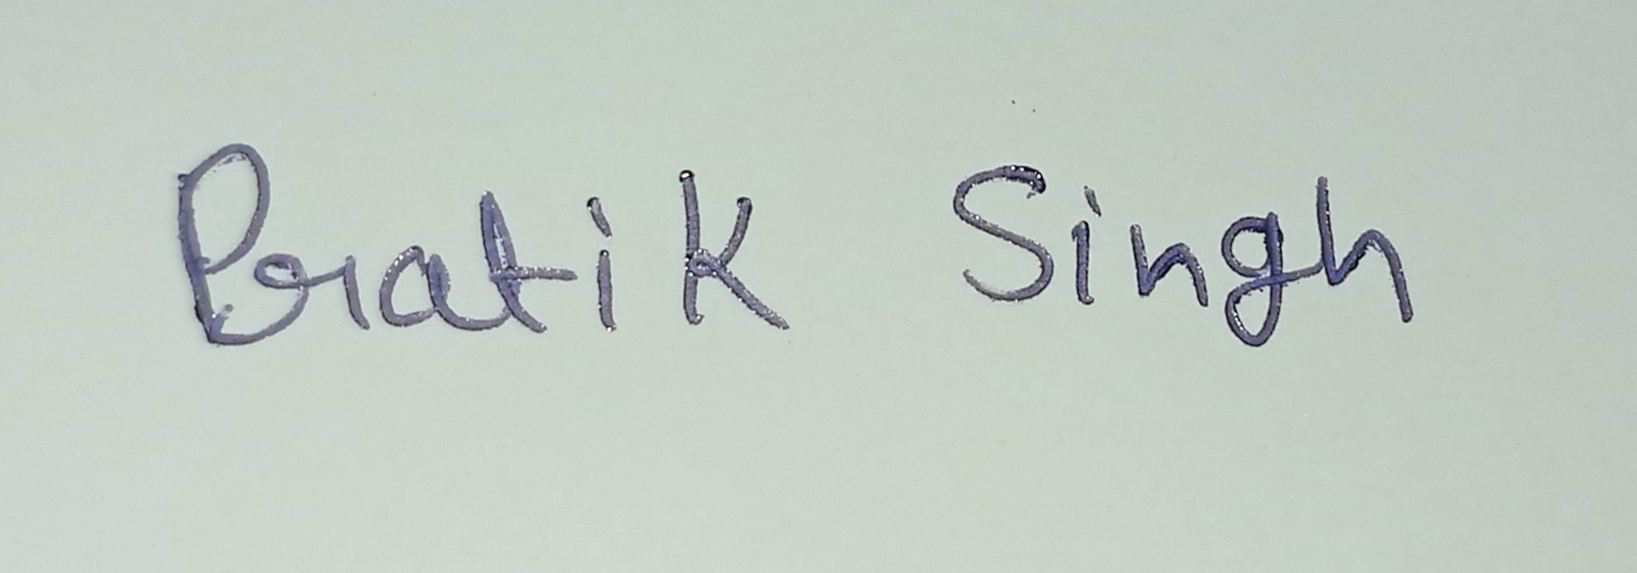 Pratik Singh